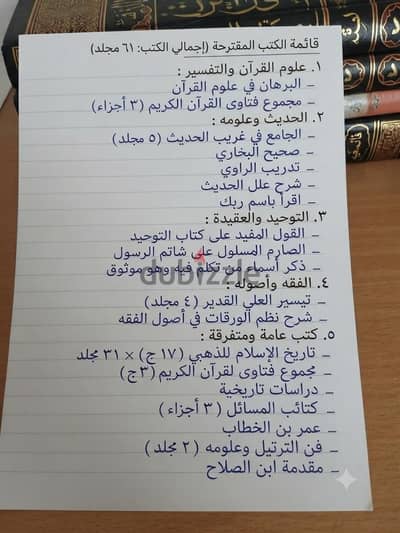 قائمة الكتب المقترحة (إجمالي الكتب: ٦١ مجلد)
١. علوم القرآن والتفسير :
– البرهان في علوم القرآن
– مجموع فتاوى القرآن الكريم (٣ أجزاء)
٢. الحديث وعلومه :
– الجامع في غريب الحديث (٥ مجلد)
– صحيح البخاري
– تدريب الراوي
– شرح علل الحديث
– اقرأ باسم ربك
٣. التوحيد والعقيدة :
– القول المفيد على كتاب التوحيد
– الصارم المسلول على شاتم الرسول
– ذكر أسماء من تكلم فيه وهو موثوق
dubizzle
٤. الفقه وأصوله :
– تيسير العلي القدير (٤ مجلد)
– شرح نظم الورقات في أصول الفقه
٥. كتب عامة ومتفرقة :
– تاريخ الإسلام للذهبي (١٧ ج) × ٣١ مجلد
– مجموع فتاوى لقرآن الكريم (٣ ج)
– دراسات تاريخية
– كتائب المسائل (٣ أجزاء)
– عمر بن الخطاب
– فن الترتيل وعلومه (٢ مجلد)
– مقدمة ابن الصلاح